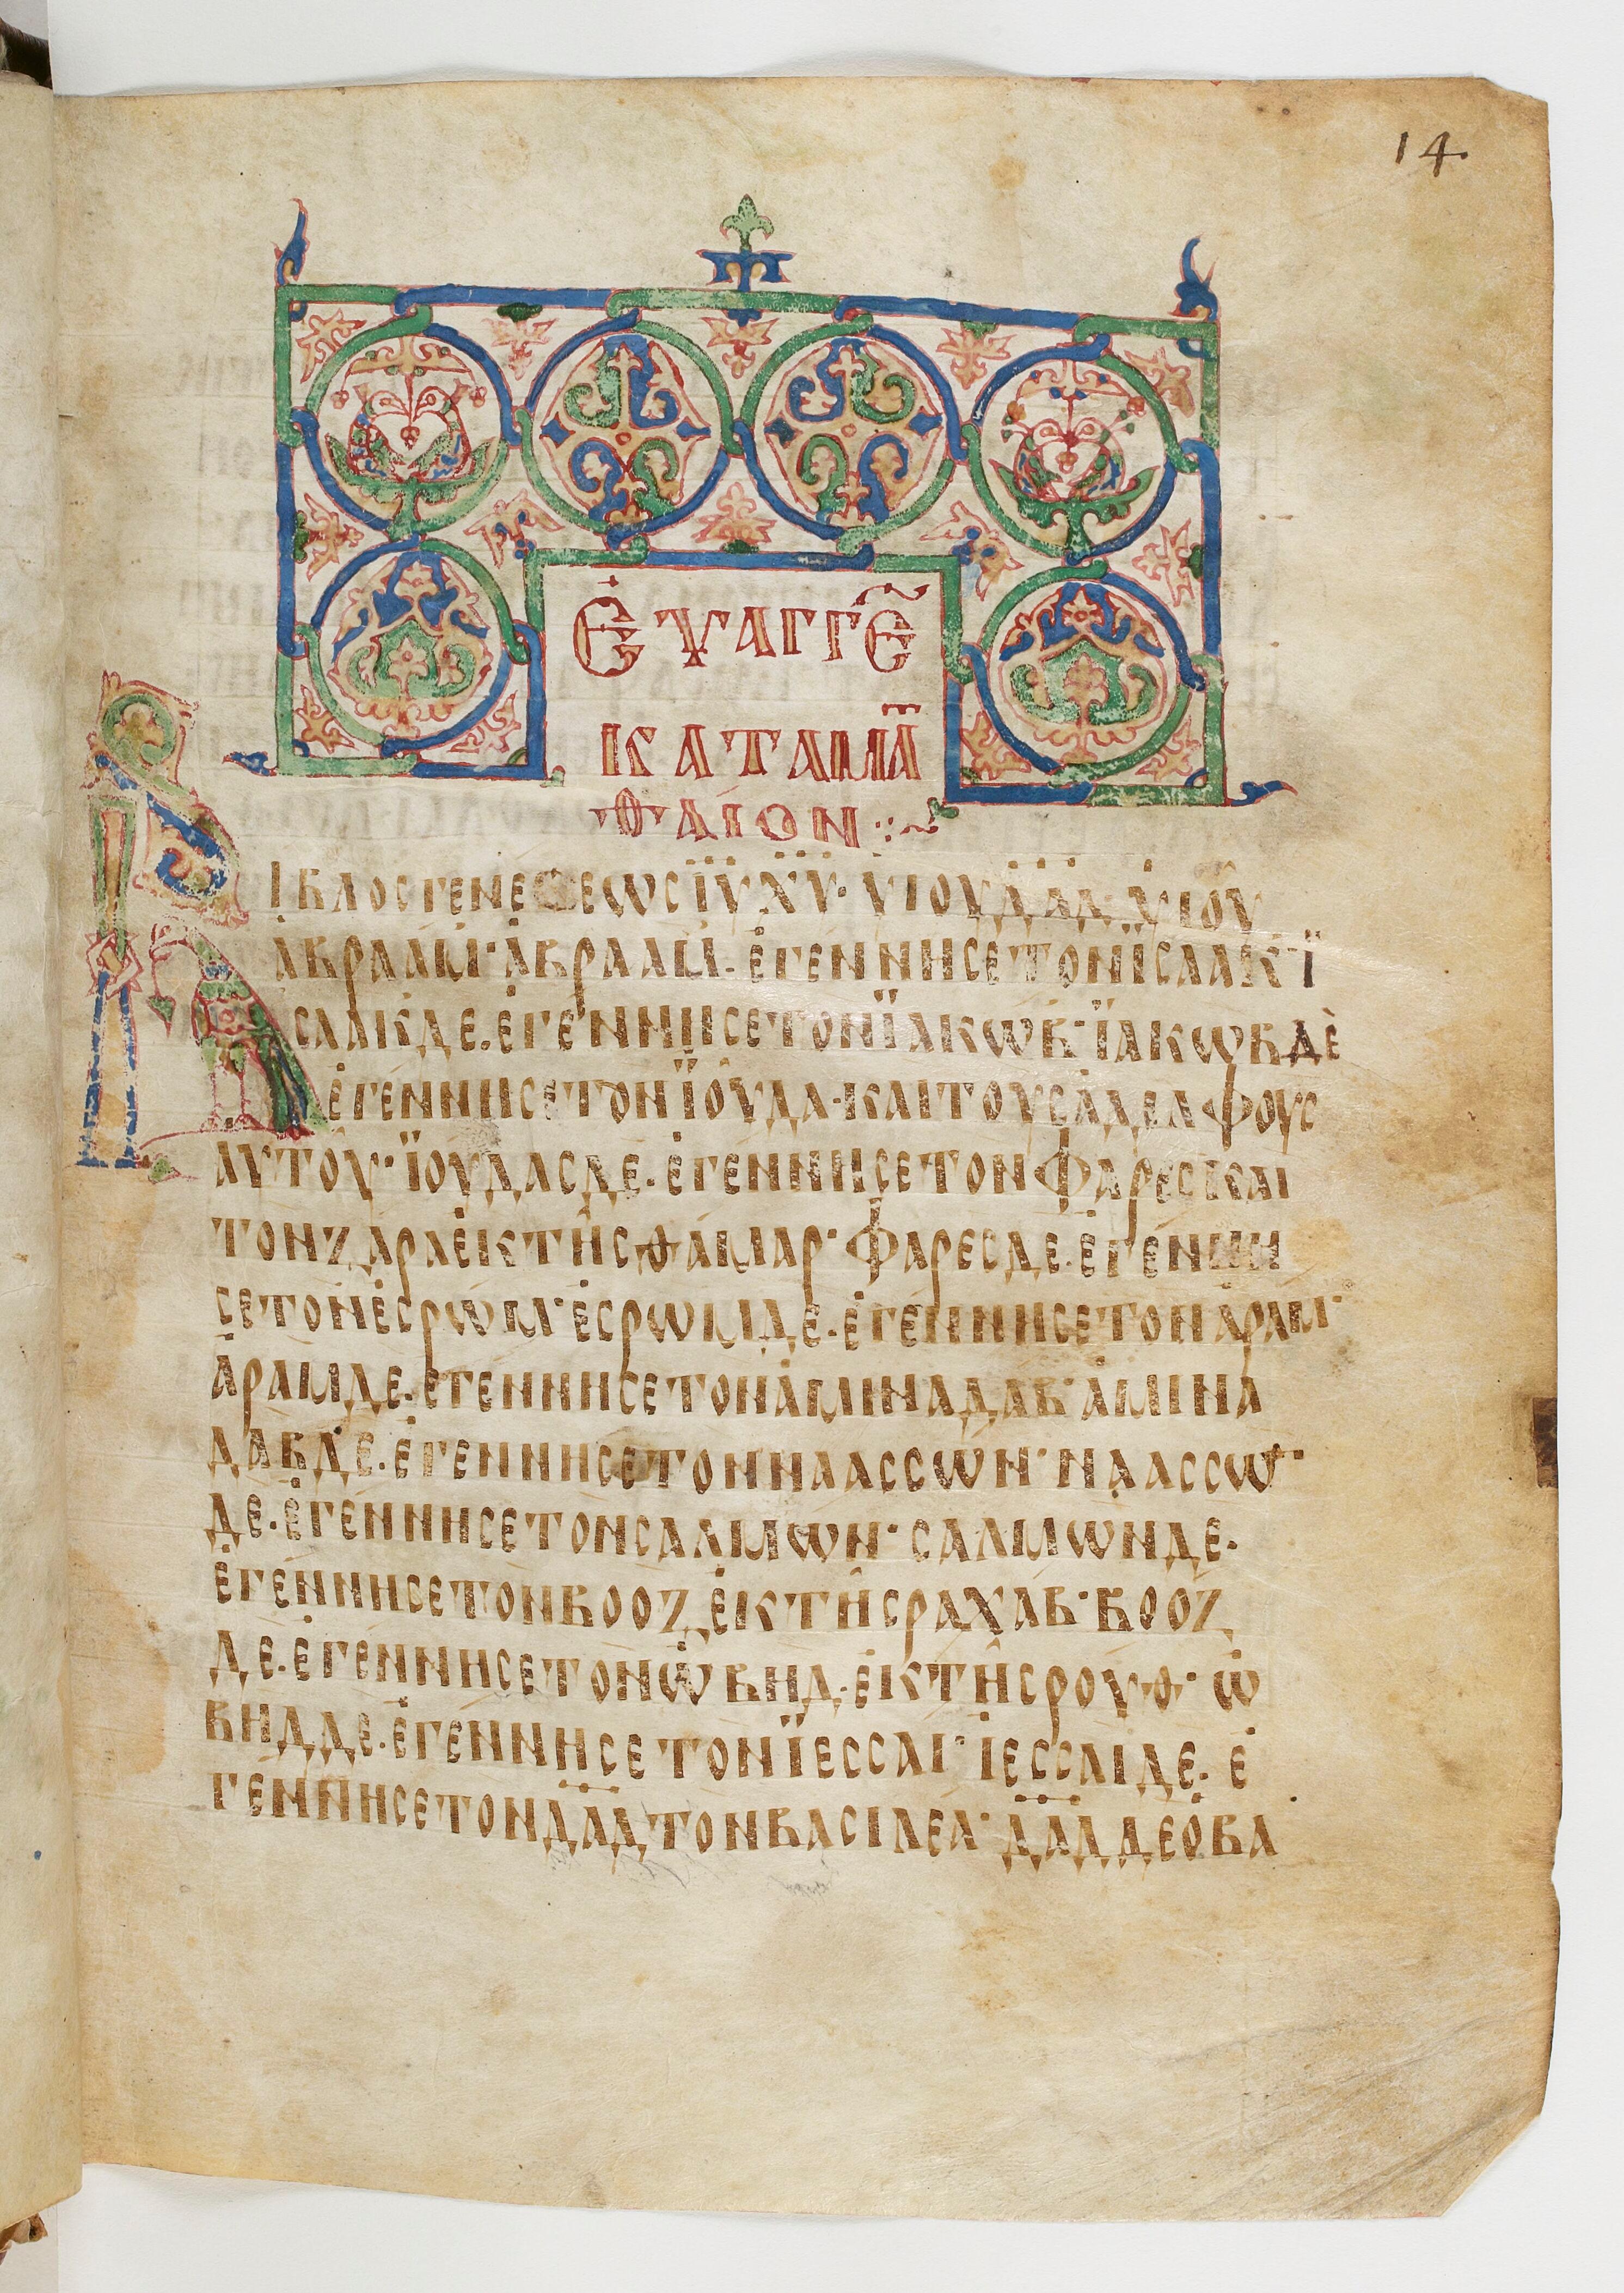 14.
ΕΥΑΓΓΕ
ΚΑΤΑΜΑ
ΘΑΙΟΝ
ΒΙΒΛΟΣ ΓΕΝΕΣΕΩΣ ΙΥ ΧΥ· ΥΙΟΥ ΔΑΔ· ΥΙΟΥ
ΑΒΡΑΑΜ· ΑΒΡΑΑΜ· ΕΓΕΝΝΗΣΕ ΤΟΝ ΙΣΑΑΚ· Ϊ
ΣΑΑΚ ΔΕ· ΕΓΕΝΝΗΣΕ ΤΟΝ ΙΑΚΩΒ· ΙΑΚΩΒ ΔΕ
ΕΓΕΝΝΗΣΕ ΤΟΝ ΙΟΥΔΑ· ΚΑΙ ΤΟΥΣ ΑΔΕΛΦΟΥΣ
ΑΥΤΟΥ· ΙΟΥΔΑΣ ΔΕ· ΕΓΕΝΝΗΣΕ ΤΟΝ ΦΑΡΕΣ ΚΑΙ
ΤΟΝ ΖΑΡΑ ΕΚ ΤΗΣ ΘΑΜΑΡ· ΦΑΡΕΣ ΔΕ· ΕΓΕΝΝΗ
ΣΕ ΤΟΝ ΕΣΡΩΜ· ΕΣΡΩΜ ΔΕ· ΕΓΕΝΝΗΣΕ ΤΟΝ ΑΡΑΜ·
ΑΡΑΜ ΔΕ· ΕΓΕΝΝΗΣΕ ΤΟΝ ΑΜΙΝΑΔΑΒ· ΑΜΙΝΑ
ΔΑΒ ΔΕ· ΕΓΕΝΝΗΣΕ ΤΟΝ ΝΑΑΣΣΩΝ· ΝΑΑΣΣΩ
ΔΕ· ΕΓΕΝΝΗΣΕ ΤΟΝ ΣΑΛΜΩΝ· ΣΑΛΜΩΝ ΔΕ·
ΕΓΕΝΝΗΣΕ ΤΟΝ ΒΟΟΖ ΕΚ ΤΗΣ ΡΑΧΑΒ· ΒΟΟΖ
ΔΕ· ΕΓΕΝΝΗΣΕ ΤΟΝ ΩΒΗΔ· ΕΚ ΤΗΣ ΡΟΥΘ· Ω
ΒΗΔ ΔΕ· ΕΓΕΝΝΗΣΕ ΤΟΝ ΙΕΣΣΑΙ· ΙΕΣΣΑΙ ΔΕ· Ε
ΓΕΝΝΗΣΕ ΤΟΝ ΔΑΔ ΤΟΝ ΒΑΣΙΛΕΑ· ΔΑΔ ΔΕ Ο ΒΑ